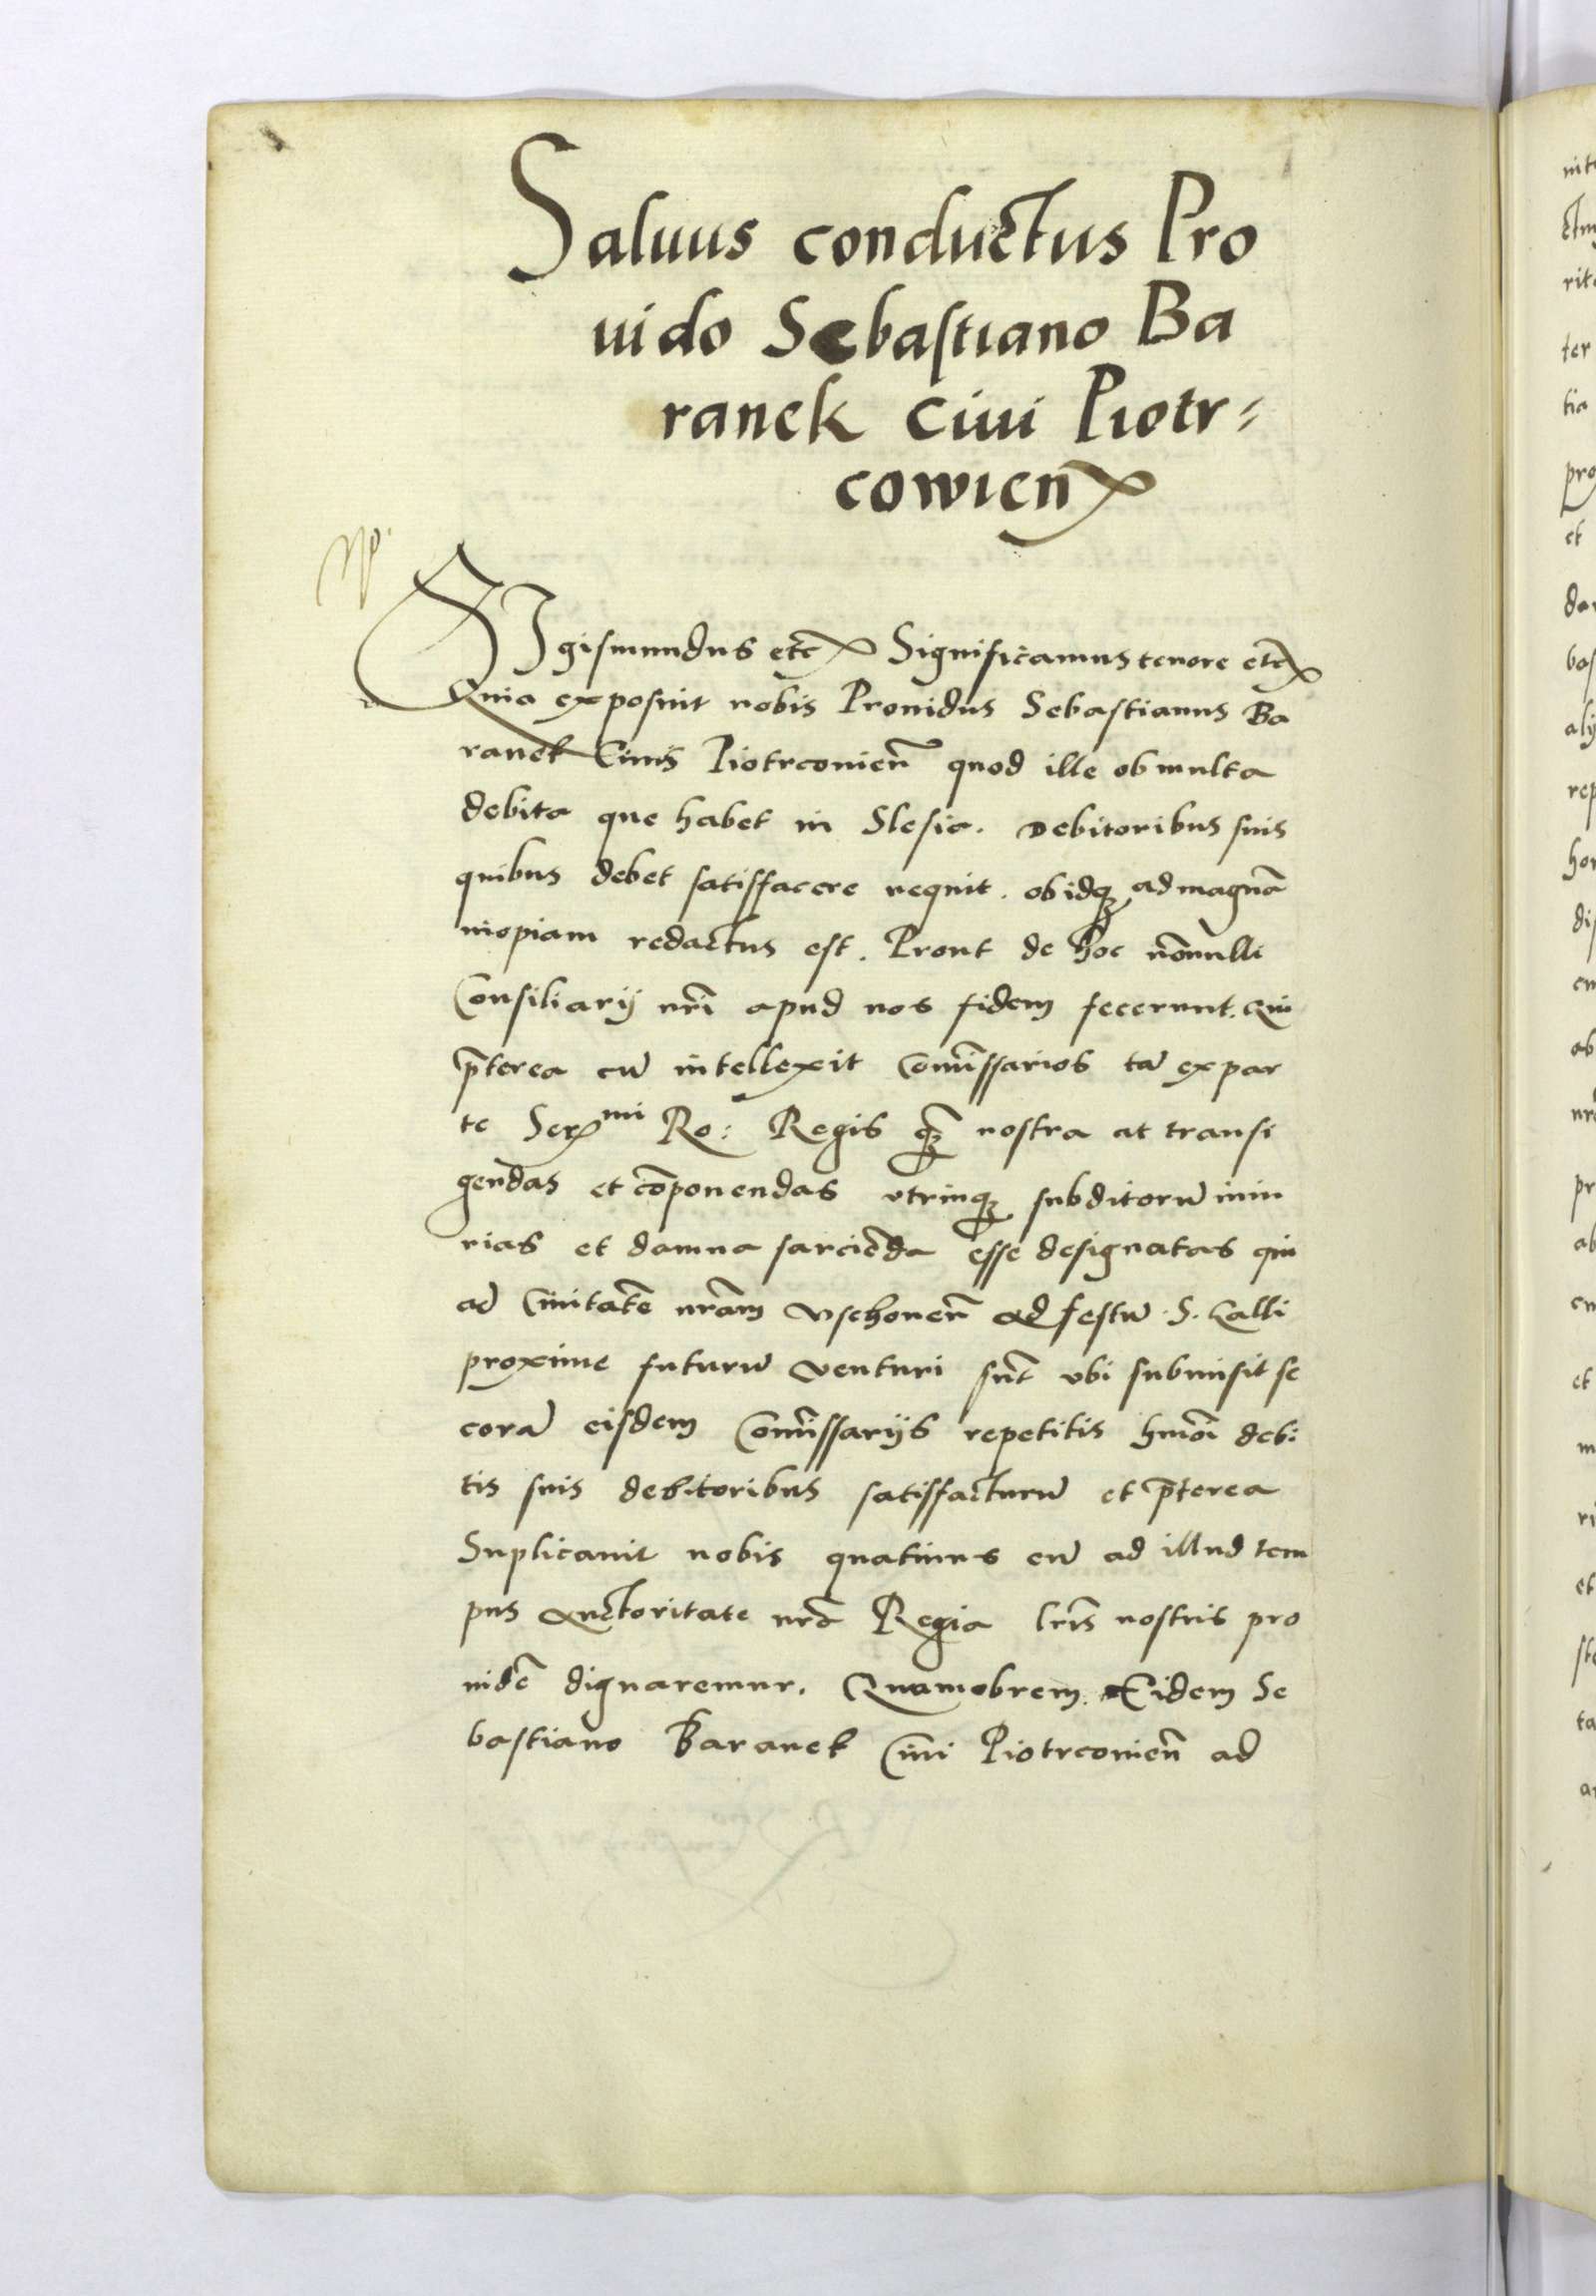 Saluus conductus Pro
uido Sebastiano Ba
ranek ciui Piotr=
cowien
SIgismundus etc Significamus tenore etc
Quia exposuit nobis Prouidus Sebastianus Ba
ranek Ciuis Piotrconien̄ quod ille ob multa
debita que habet in Slesia. Debitoribus suis
quibus debet satisfacere nequit. ob idqꝫ ad magnā
inopiam redactus est. Prout de hoc nōnulli
Consiliarij nr̄i apud nos fidem fecerunt. Qui
p̄terea cū intellexit Com̄issarios tā ex par
te Sermi Ro: Regis qꝫ̄ nostra at transi
gendas et cōponendas vtrinqꝫ subditorū iniu
rias et damna sarciēda esse designatas qui
ad Ciuitatē nr̄am Vschouen̄ ad festū S. Galli
proxime futurū venturi sūt vbi submisit se
corā eisdem Com̄issarijs repetitis hmōi debi
tis suis debitoribus satisfacturū et p̄terea
Suplicauit nobis quatinus eū ad illud tem
pus Auctoritate nr̄a Regia lr̄is nostris pro
uidē dignaremur. Quamobrem Eidem Se
bastiano Baranek Ciui Piotrconien̄ ad